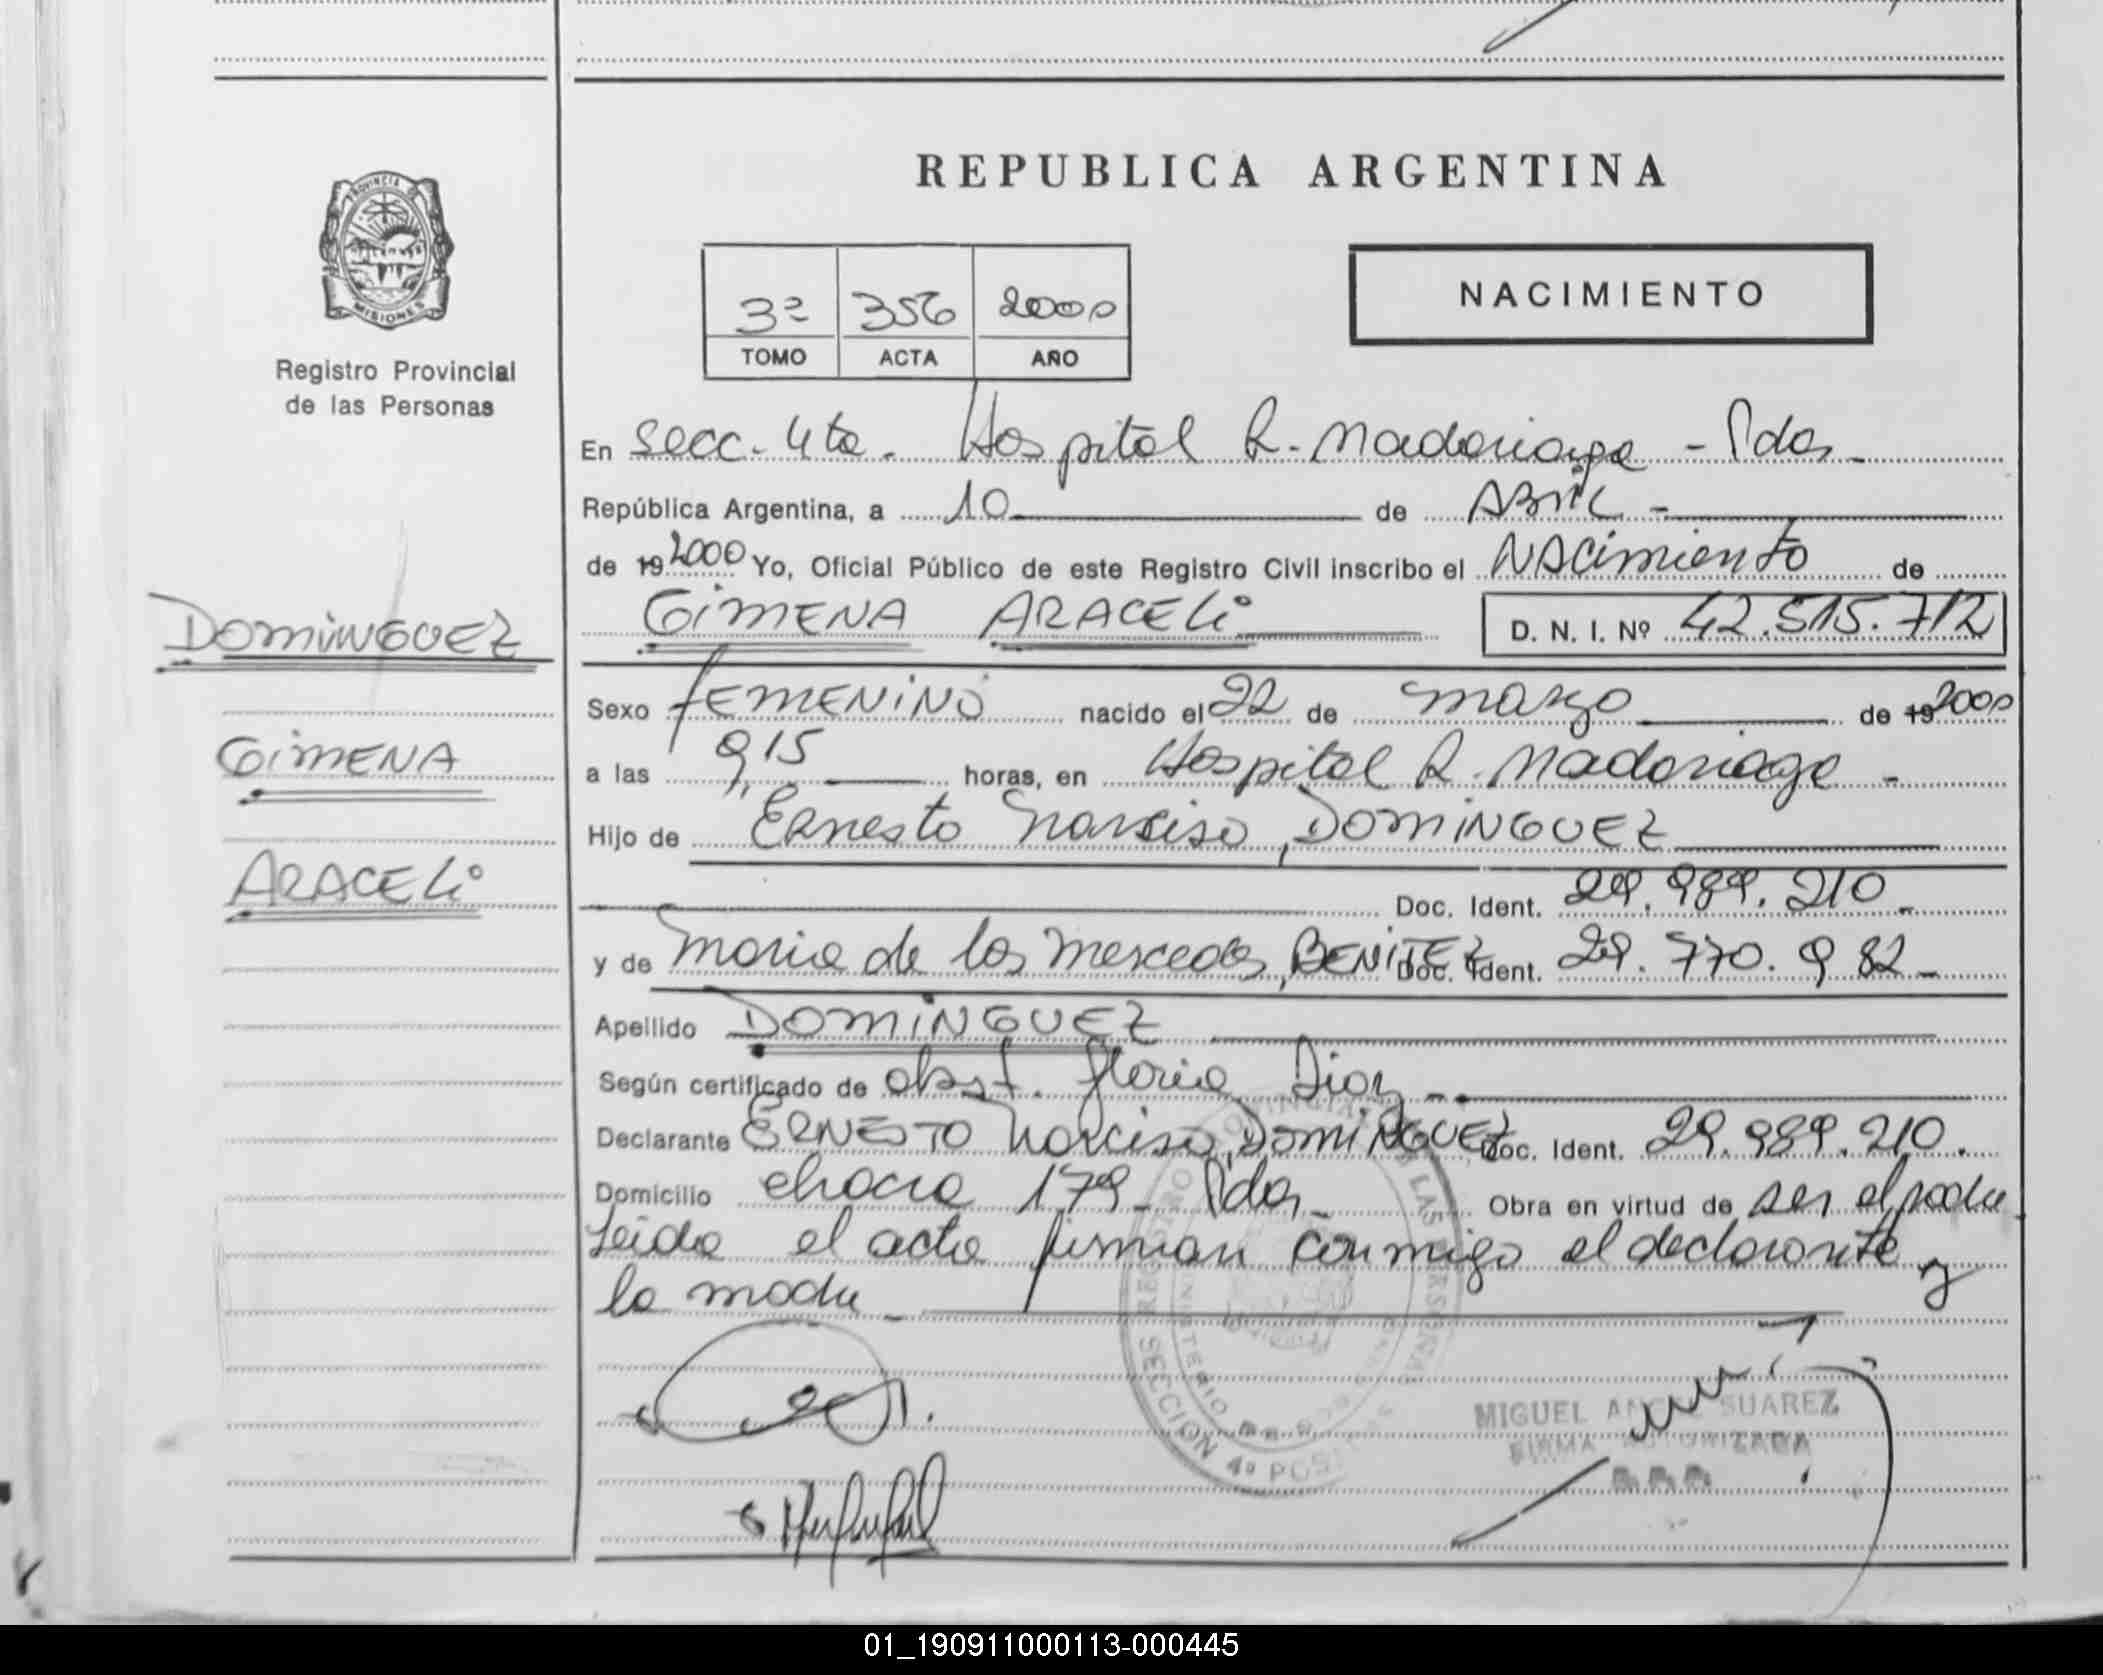 REPUBLICA ARGENTINA
PROVINCIA DE
MISIONES
Registro Provincial
de las Personas
3ª 356 2000
TOMO ACTA AÑO
NACIMIENTO
En Secc. 4ta. Hospital R. Madariaga - Pdas.
República Argentina, a 10 de ABRIL -
de 19 2000 Yo, Oficial Público de este Registro Civil inscribo el NACimiento de
GIMENA ARACELi D. N. I. Nº 42.515.712
DOMINGUEZ
GIMENA
ARACELi
Sexo FEMENINO nacido el 22 de marzo de 19 2000
a las 9,15 horas, en Hospital R. Madariaga -
Hijo de Ernesto Narciso, DOMINGUEZ
Doc. Ident. 29.989.210 -
y de Maria de las Mercedes, BENITEZ Doc. Ident. 29.770.982 -
Apellido DOMINGUEZ
Según certificado de obst. Gloria Diaz -
Declarante ERNESTO Narciso, DOMINGUEZ Doc. Ident. 29.989.210.
Domicilio chacra 179 - Pdas - Obra en virtud de ser el padre
Leida el acta firman conmigo el declarante y
la madre -
REGISTRO PROVINCIAL DE LAS PERSONAS
MINISTERIO DE
SECCION 4ª POSADAS
MIGUEL ANGEL SUAREZ
FIRMA AUTORIZADA
01_190911000113-000445